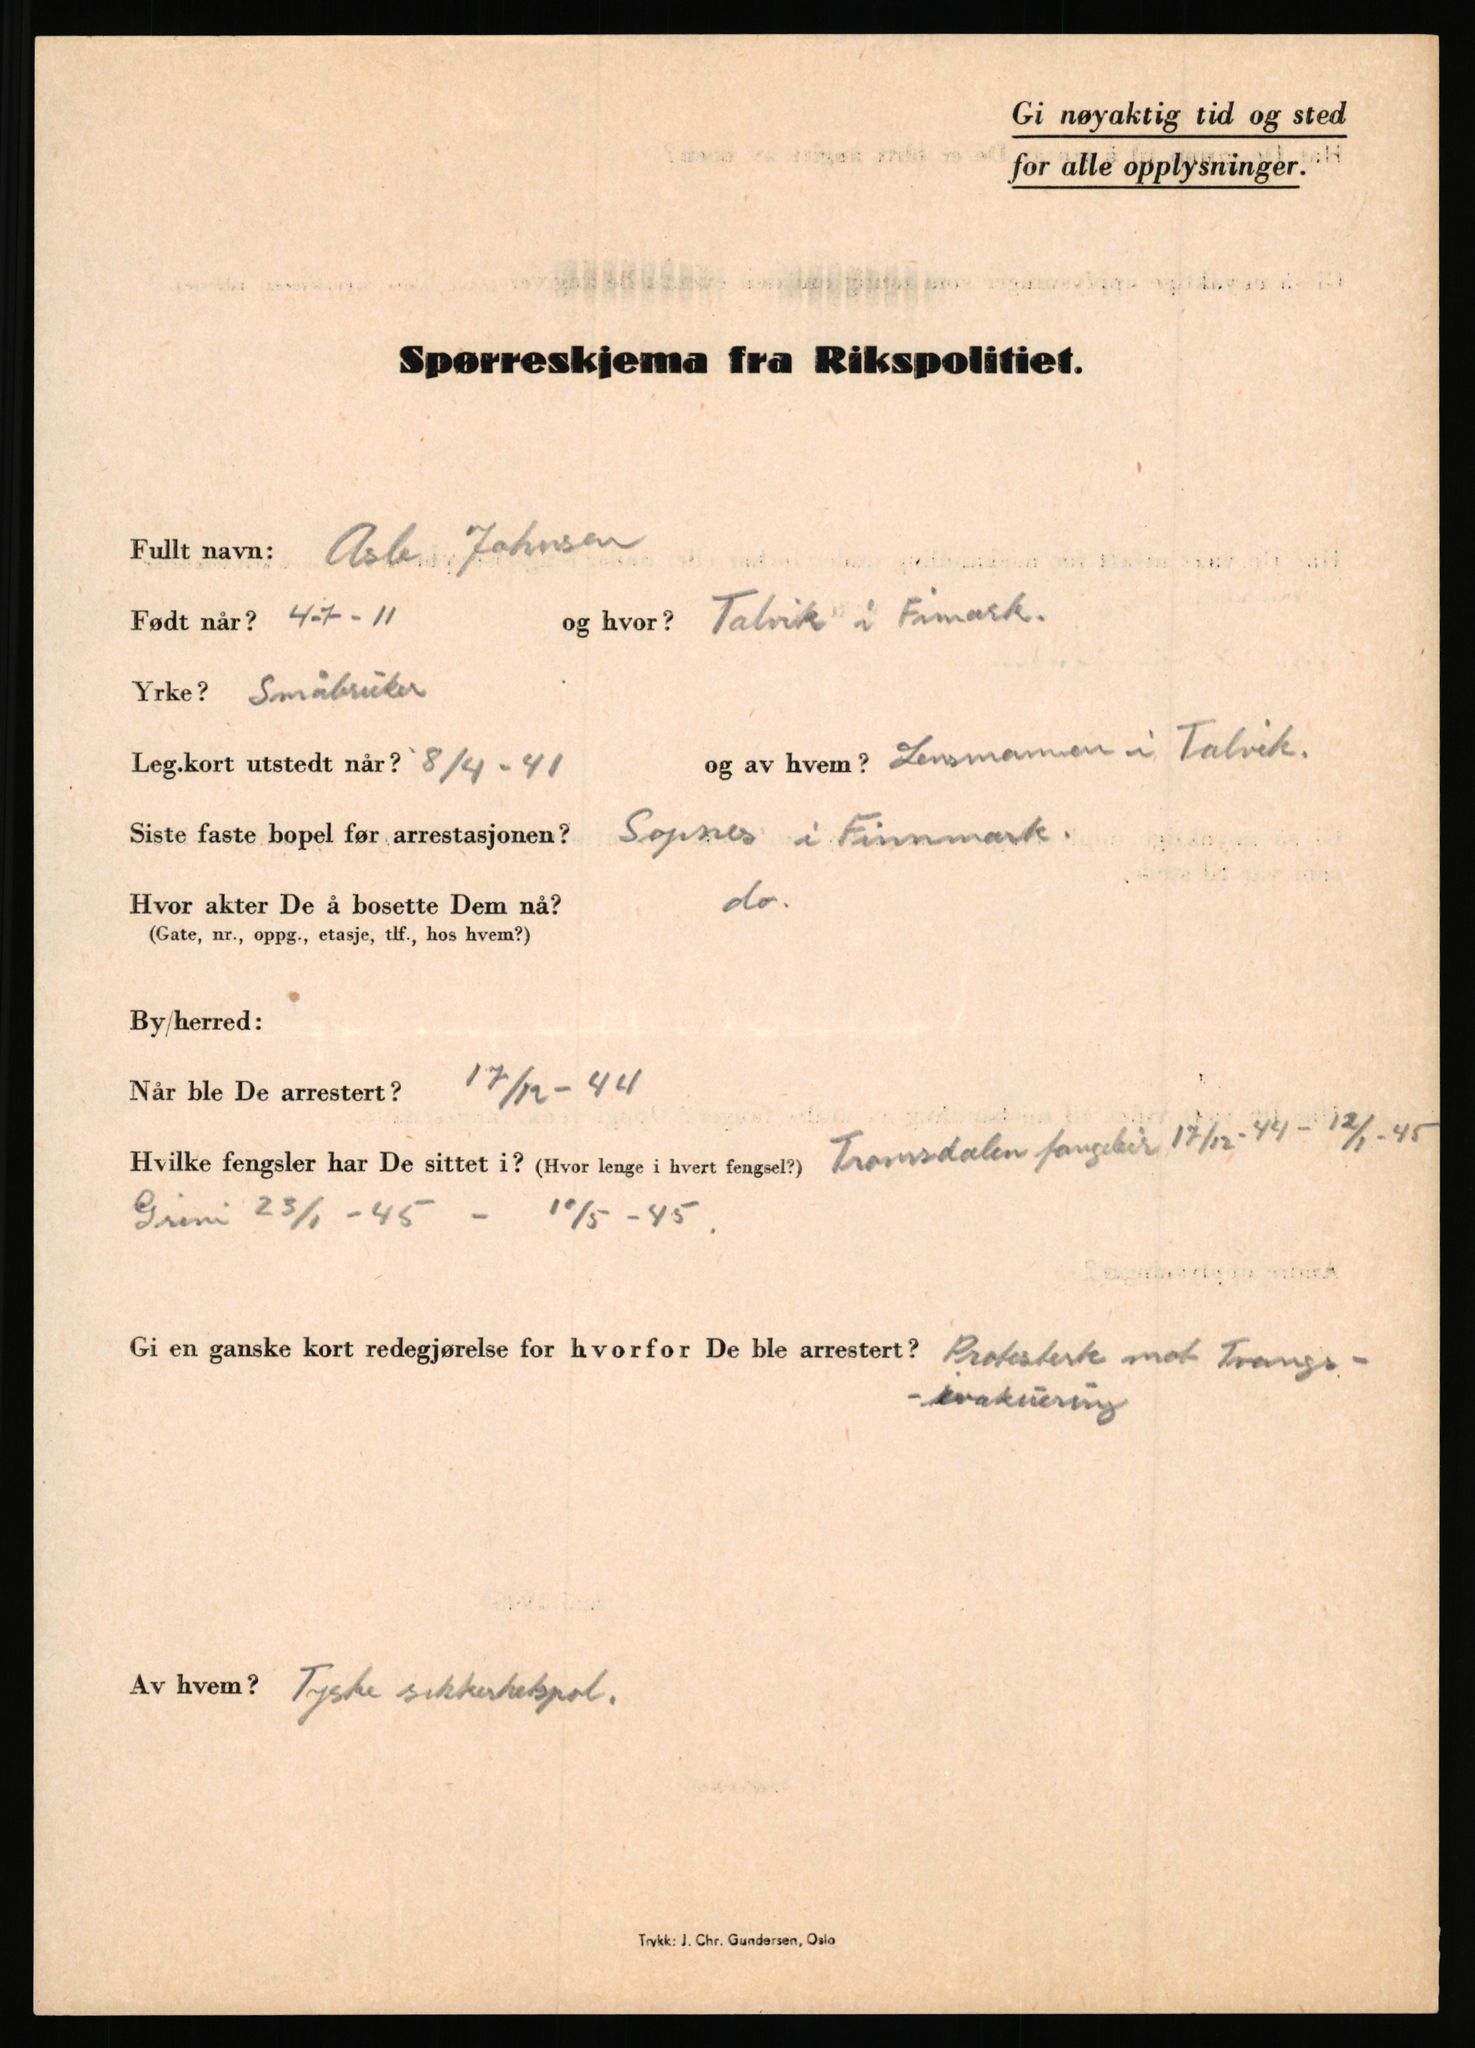 Gi nøyaktig tid og sted
for alle opplysninger.
Spørreskjema fra Rikspolitiet.
Fullt navn: Asle Johnsen
Født når? 4-7-11 og hvor? Talvik i Fimark.
Yrke? Småbruker
Leg.kort utstedt når? 8/4-41 og av hvem? Lensmannen i Talvik.
Siste faste bopel før arrestasjonen? Sopnes i Finnmark.
Hvor akter De å bosette Dem nå? do.
(Gate, nr., oppg., etasje, tlf., hos hvem?)
By/herred:
Når ble De arrestert? 17/12-44
Hvilke fengsler har De sittet i? (Hvor lenge i hvert fengsel?) Tromsdalen fangeleir 17/12-44 - 12/1-45
Grini 23/1-45 - 10/5-45.
Gi en ganske kort redegjørelse for hvorfor De ble arrestert? Protesterte mot Tvangs-
-evakuering
Av hvem? Tyske sikkerhetspol.
Trykk: J. Chr. Gundersen, Oslo